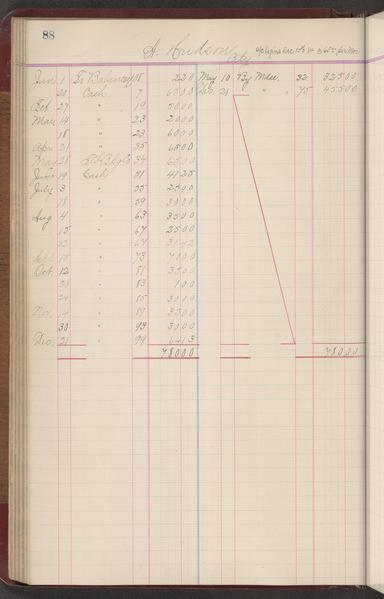 88
Hudson City
Jan 1 To Balance 58 2 20 May 10 By Mdse. 32 325 00
21 Cash 7 65 00 Dec. 21 " " 95 455 00
Feb. 27 " 19 50 00
Mar 14 " 23 20 00
18 " 23 60 00
Apr 21 " 35 65 00
May 28 34 65 00
June 19 Cash 51 41 25
July 3 " 55 25 00
18 " 59 30 00
Aug 4 " 63 35 00
15 " 67 25 00
22 " 67 31 42
Sept 15 " 73 70 00
Oct. 12 " 81 35 00
20 " 83 1 00
24 " 85 30 00
Nov. 14 " 89 35 00
30 " 93 30 00
Dec. 21 " 94 64 13
780 00 780 00